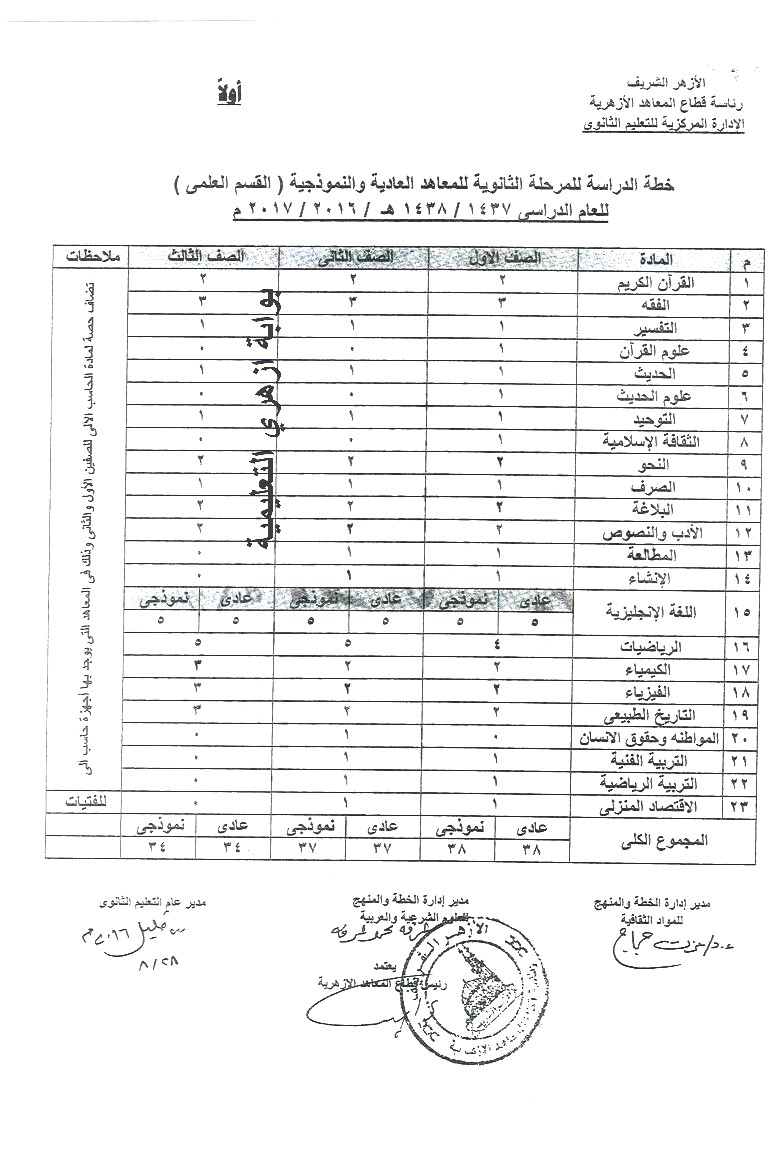 الأزهر الشريف
رئاسة قطاع المعاهد الأزهرية
الادارة المركزية للتعليم الثانوى
أولاً
خطة الدراسة للمرحلة الثانوية للمعاهد العادية والنموذجية ( القسم العلمى )
للعام الدراسى ١٤٣٧ / ١٤٣٨ هـ / ٢٠١٦ / ٢٠١٧ م
م المادة الصف الاول الصف الثانى الصف الثالث ملاحظات
١ القرآن الكريم ٢ ٢ ٢
٢ الفقه ٣ ٣ ٣
٣ التفسير ١ ١ ١
٤ علوم القرآن ١ ٠ ٠
٥ الحديث ١ ١ ١
٦ علوم الحديث ١ ٠ ٠
٧ التوحيد ١ ١ ١
٨ الثقافة الإسلامية ١ ٠ ٠
٩ النحو ٢ ٢ ٢
١٠ الصرف ١ ١ ١
١١ البلاغة ٢ ٢ ٢
١٢ الأدب والنصوص ٢ ٢ ٢
١٣ المطالعة ١ ١ ٠
١٤ الإنشاء ١ ١ ٠
عادى نموذجى عادى نموذجى عادى نموذجى
١٥ اللغة الإنجليزية ٥ ٥ ٥ ٥ ٥ ٥
١٦ الرياضيات ٤ ٥ ٥
١٧ الكيمياء ٢ ٢ ٣
١٨ الفيزياء ٢ ٢ ٣
١٩ التاريخ الطبيعى ٢ ٢ ٣
٢٠ المواطنه وحقوق الانسان ٠ ١ ٠
٢١ التربية الفنية ١ ١ ٠
٢٢ التربية الرياضية ١ ١ ٠
٢٣ الاقتصاد المنزلى ١ ١ ٠ للفتيات
عادى نموذجى عادى نموذجى عادى نموذجى
المجموع الكلى ٣٨ ٣٨ ٣٧ ٣٧ ٣٤ ٣٤
تضاف حصة لمادة الحاسب الالى للصفين الأول والثانى وذلك فى المعاهد التى يوجد بها أجهزة حاسب الى
بوابة ازهري التعليمية
مدير إدارة الخطة والمنهج
للمواد الثقافية
مدير إدارة الخطة والمنهج
للعلوم الشرعية والعربية
مدير عام التعليم الثانوى
٢٠١٦م
٨/٢٨
يعتمد
رئيس قطاع المعاهد الازهرية
الازهر الشريف